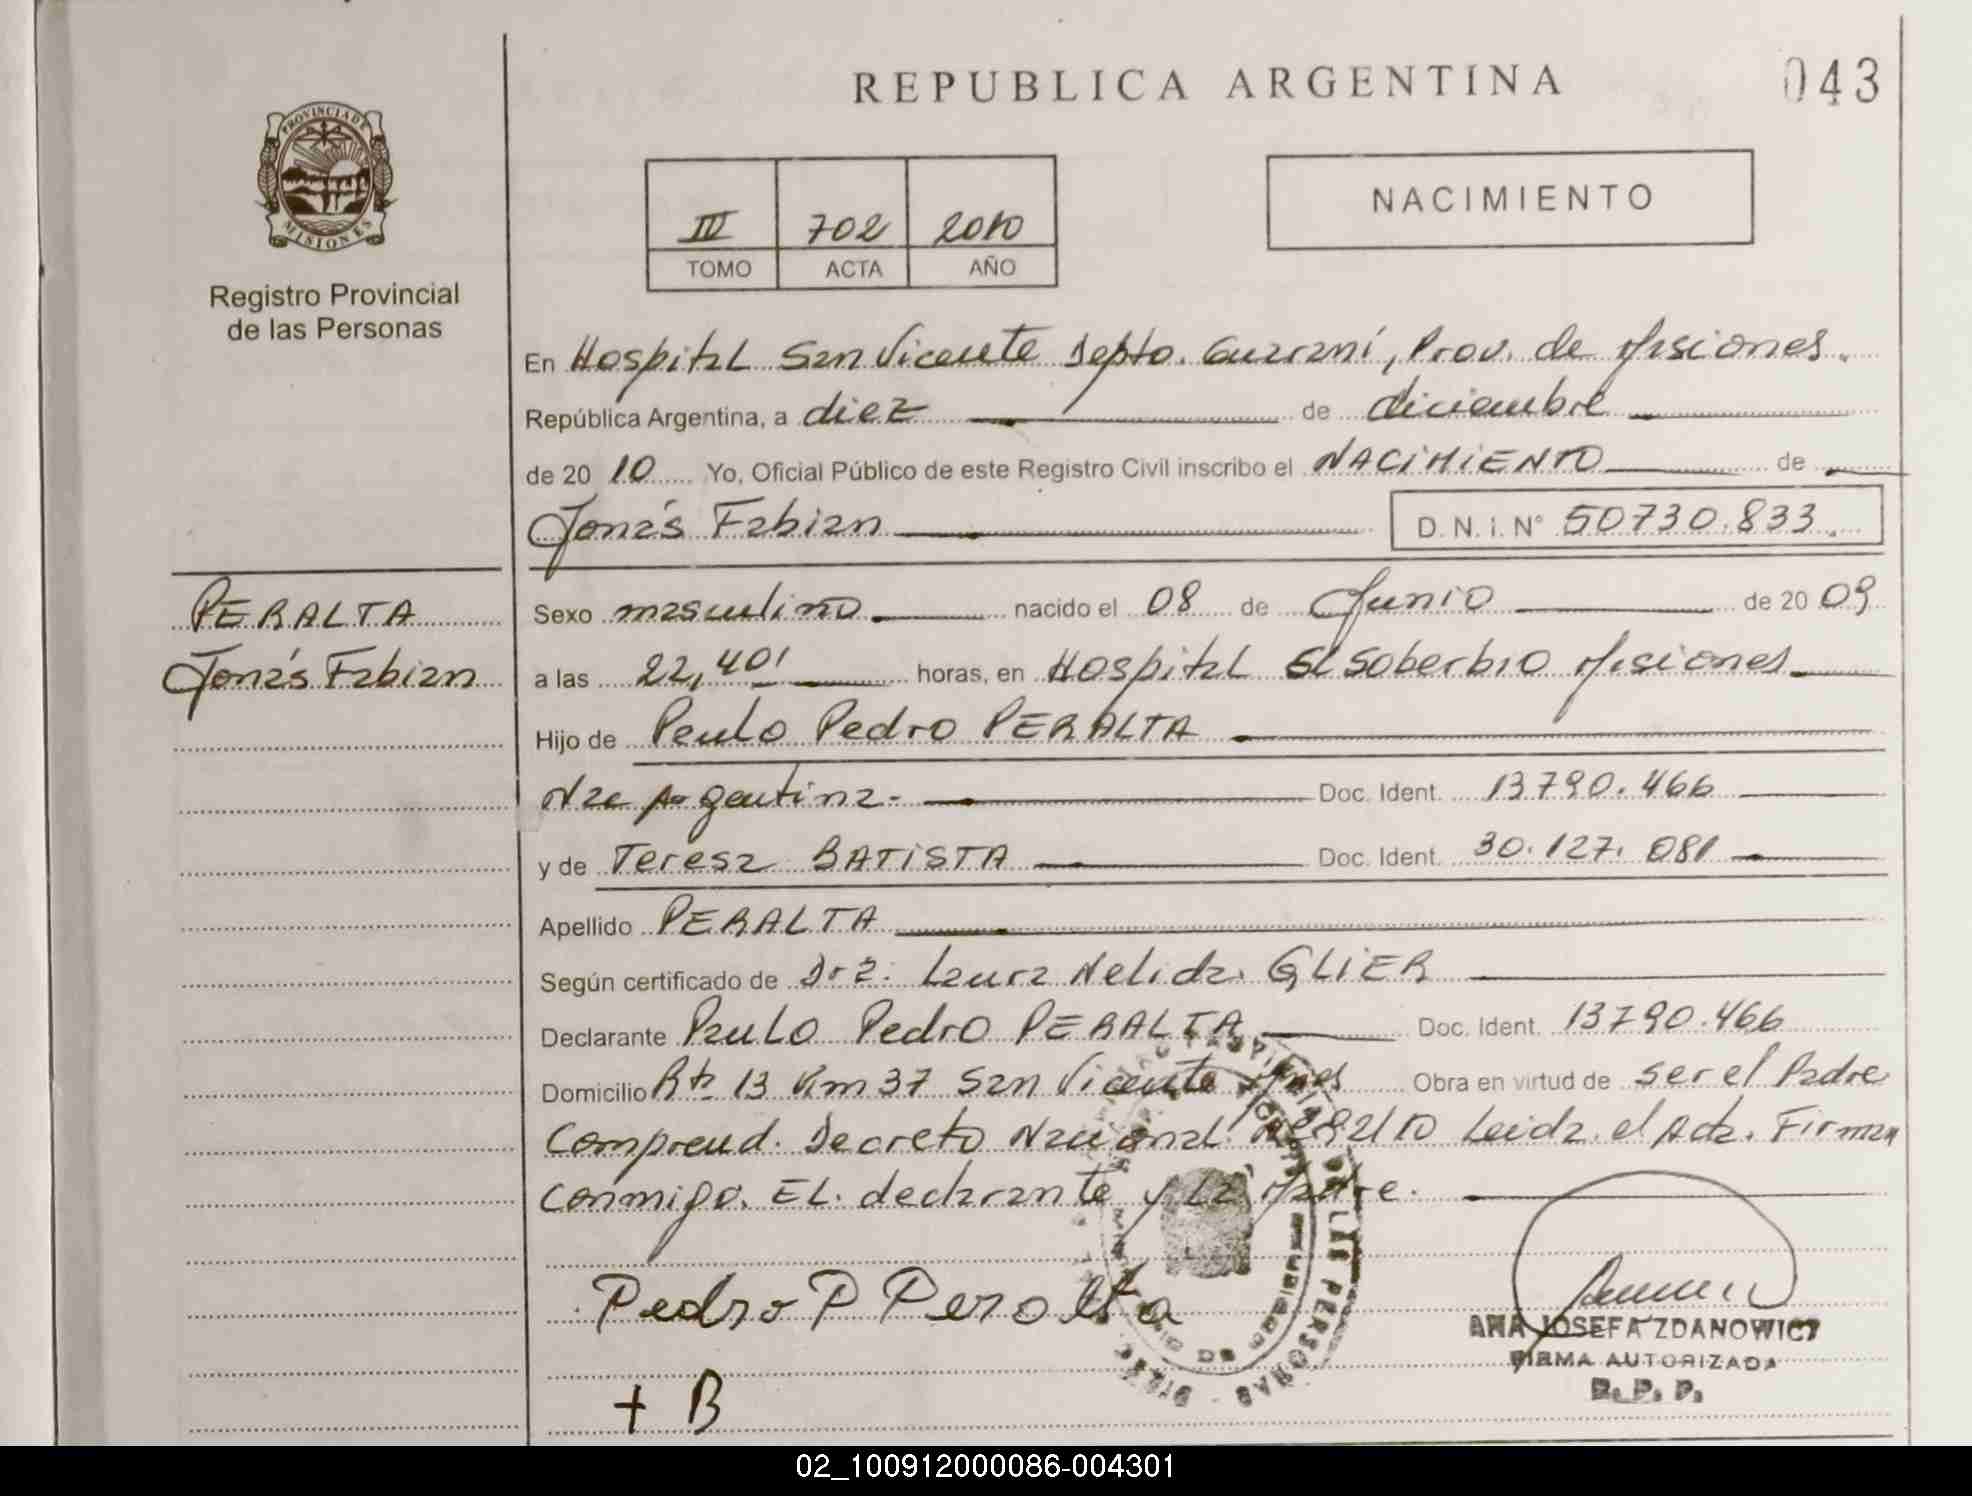 REPUBLICA ARGENTINA
043
PROVINCIA DE
MISIONES
Registro Provincial
de las Personas
III 702 2010
TOMO ACTA AÑO
NACIMIENTO
En Hospital San Vicente Depto. Guaraní, Prov. de Misiones.
República Argentina, a diez de diciembre
de 20 10 Yo, Oficial Público de este Registro Civil inscribo el NACIMIENTO de
Jonás Fabian D.N.I. N° 50730.833
PERALTA
Jonás Fabian
Sexo masculino nacido el 08 de Junio de 20 09
a las 22,40' horas, en Hospital El Soberbio Misiones
Hijo de Paulo Pedro PERALTA
Nac Argentina.- Doc. Ident. 13790.466
y de Teresa BATISTA Doc. Ident. 30.127.081
Apellido PERALTA
Según certificado de Dra. Laura Nelida GLIER
Declarante Paulo Pedro PERALTA Doc. Ident. 13790.466
Domicilio Rta 13 Km 37 San Vicente Mnes Obra en virtud de ser el Padre
Comprend. Decreto Nacional Leida el Acta. Firman
conmigo. EL declarante y La Madre.
Pedro P Peralta
+ B
DE LAS PERSONAS
ANA JOSEFA ZDANOWICZ
FIRMA AUTORIZADA
R. P. P.
02_100912000086-004301